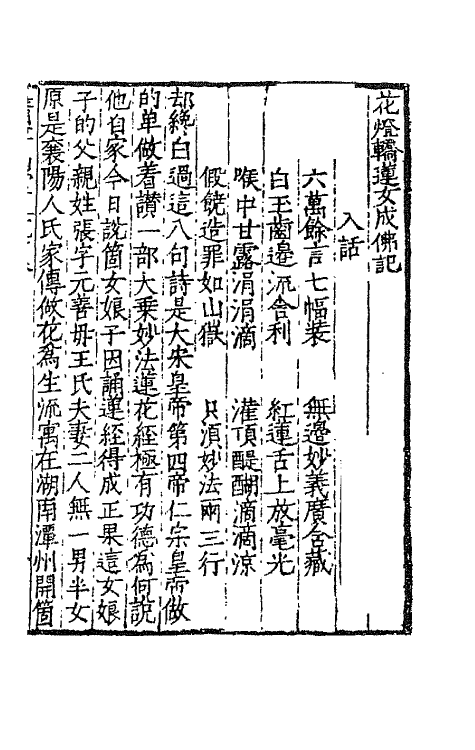 花燈轎蓮女成佛記
入話
六萬餘言七幅裝　無邊妙義廣含藏
白玉齒邊流舍利　紅蓮舌上放毫光
喉中甘露涓涓滴　灌頂醍醐滴滴涼
假饒造罪如山嶽　只湏妙法兩三行
却纔白過這八句詩是大宋皇帝第四帝仁宗皇帝做
的单做着讃一部大乗妙法蓮花經極有功德為何說
他自家今日説箇女娘子因誦蓮經得成正果這女娘
子的父親姓張字元善母王氏夫妻二人無一男半女
原是襄陽人氏家傳做花為生流寓在湖南潭州開箇